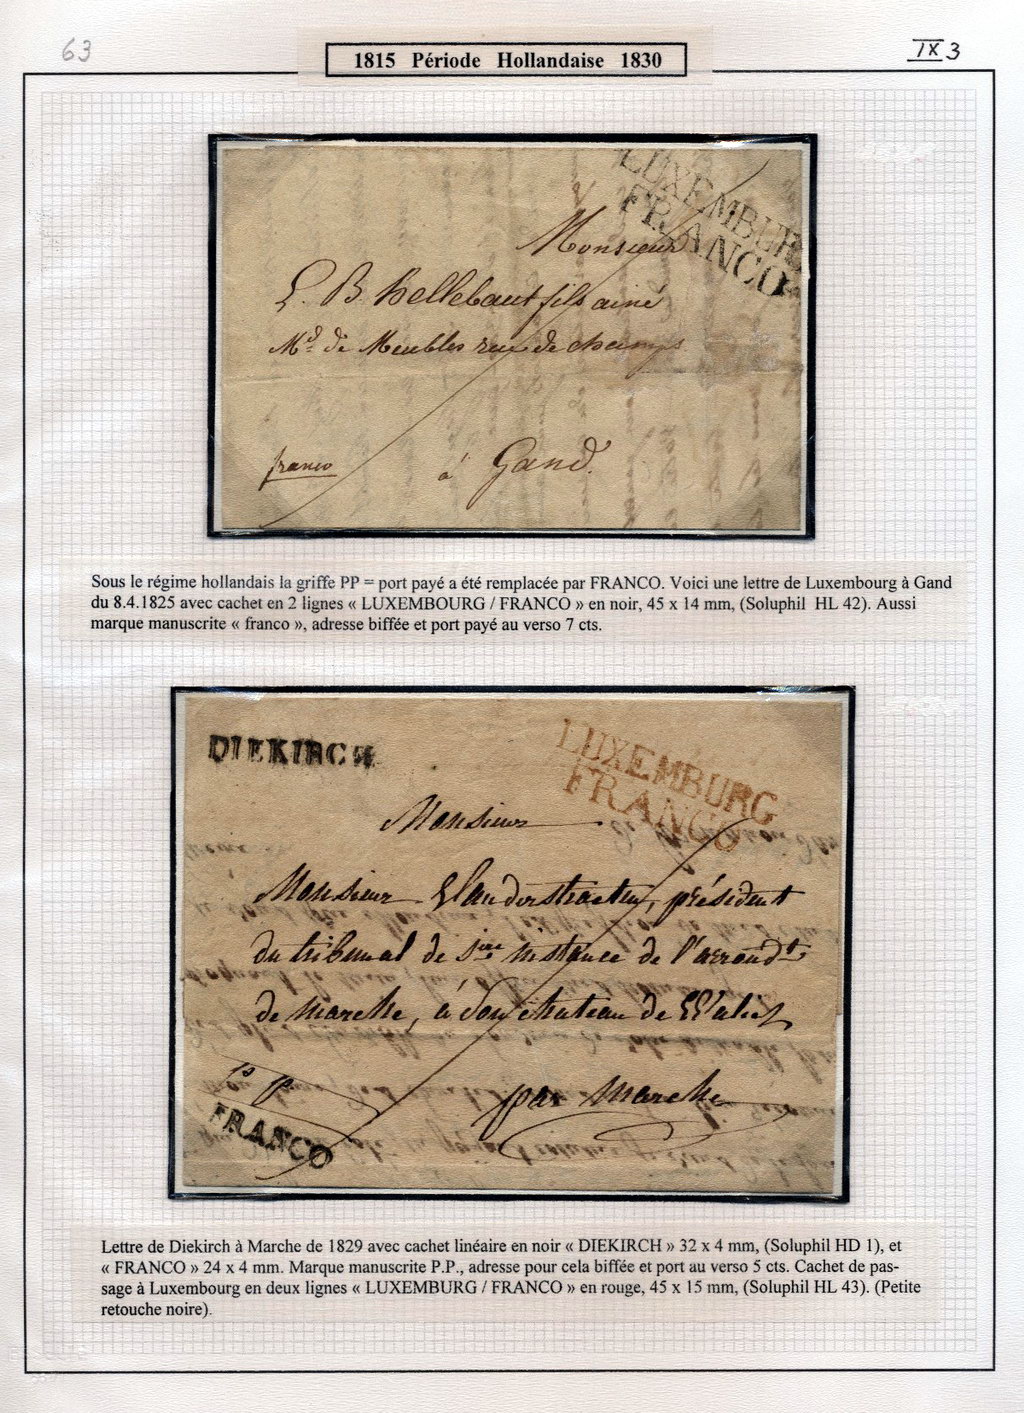 63
IX 3
1815 Période Hollandaise 1830
LUXEMBUR
FRANCO
Monsieur
L. B. hellebaut fils ainé
Md. de Meubles rue de champs
franco
á Gand.
Sous le régime hollandais la griffe PP = port payé a été remplacée par FRANCO. Voici une lettre de Luxembourg à Gand
du 8.4.1825 avec cachet en 2 lignes « LUXEMBOURG / FRANCO » en noir, 45 x 14 mm, (Soluphil HL 42). Aussi
marque manuscrite « franco », adresse biffée et port payé au verso 7 cts.
DIEKIRCH
LUXEMBURG
FRANCO
Monsieur
Monsieur Vanderstraeten, président
du tribunal de 1ière instance de l'arrondt
de marche, á son chateau de
par marche
P P
FRANCO
Lettre de Diekirch à Marche de 1829 avec cachet linéaire en noir « DIEKIRCH » 32 x 4 mm, (Soluphil HD 1), et
« FRANCO » 24 x 4 mm. Marque manuscrite P.P., adresse pour cela biffée et port au verso 5 cts. Cachet de pas-
sage à Luxembourg en deux lignes « LUXEMBURG / FRANCO » en rouge, 45 x 15 mm, (Soluphil HL 43). (Petite
retouche noire).